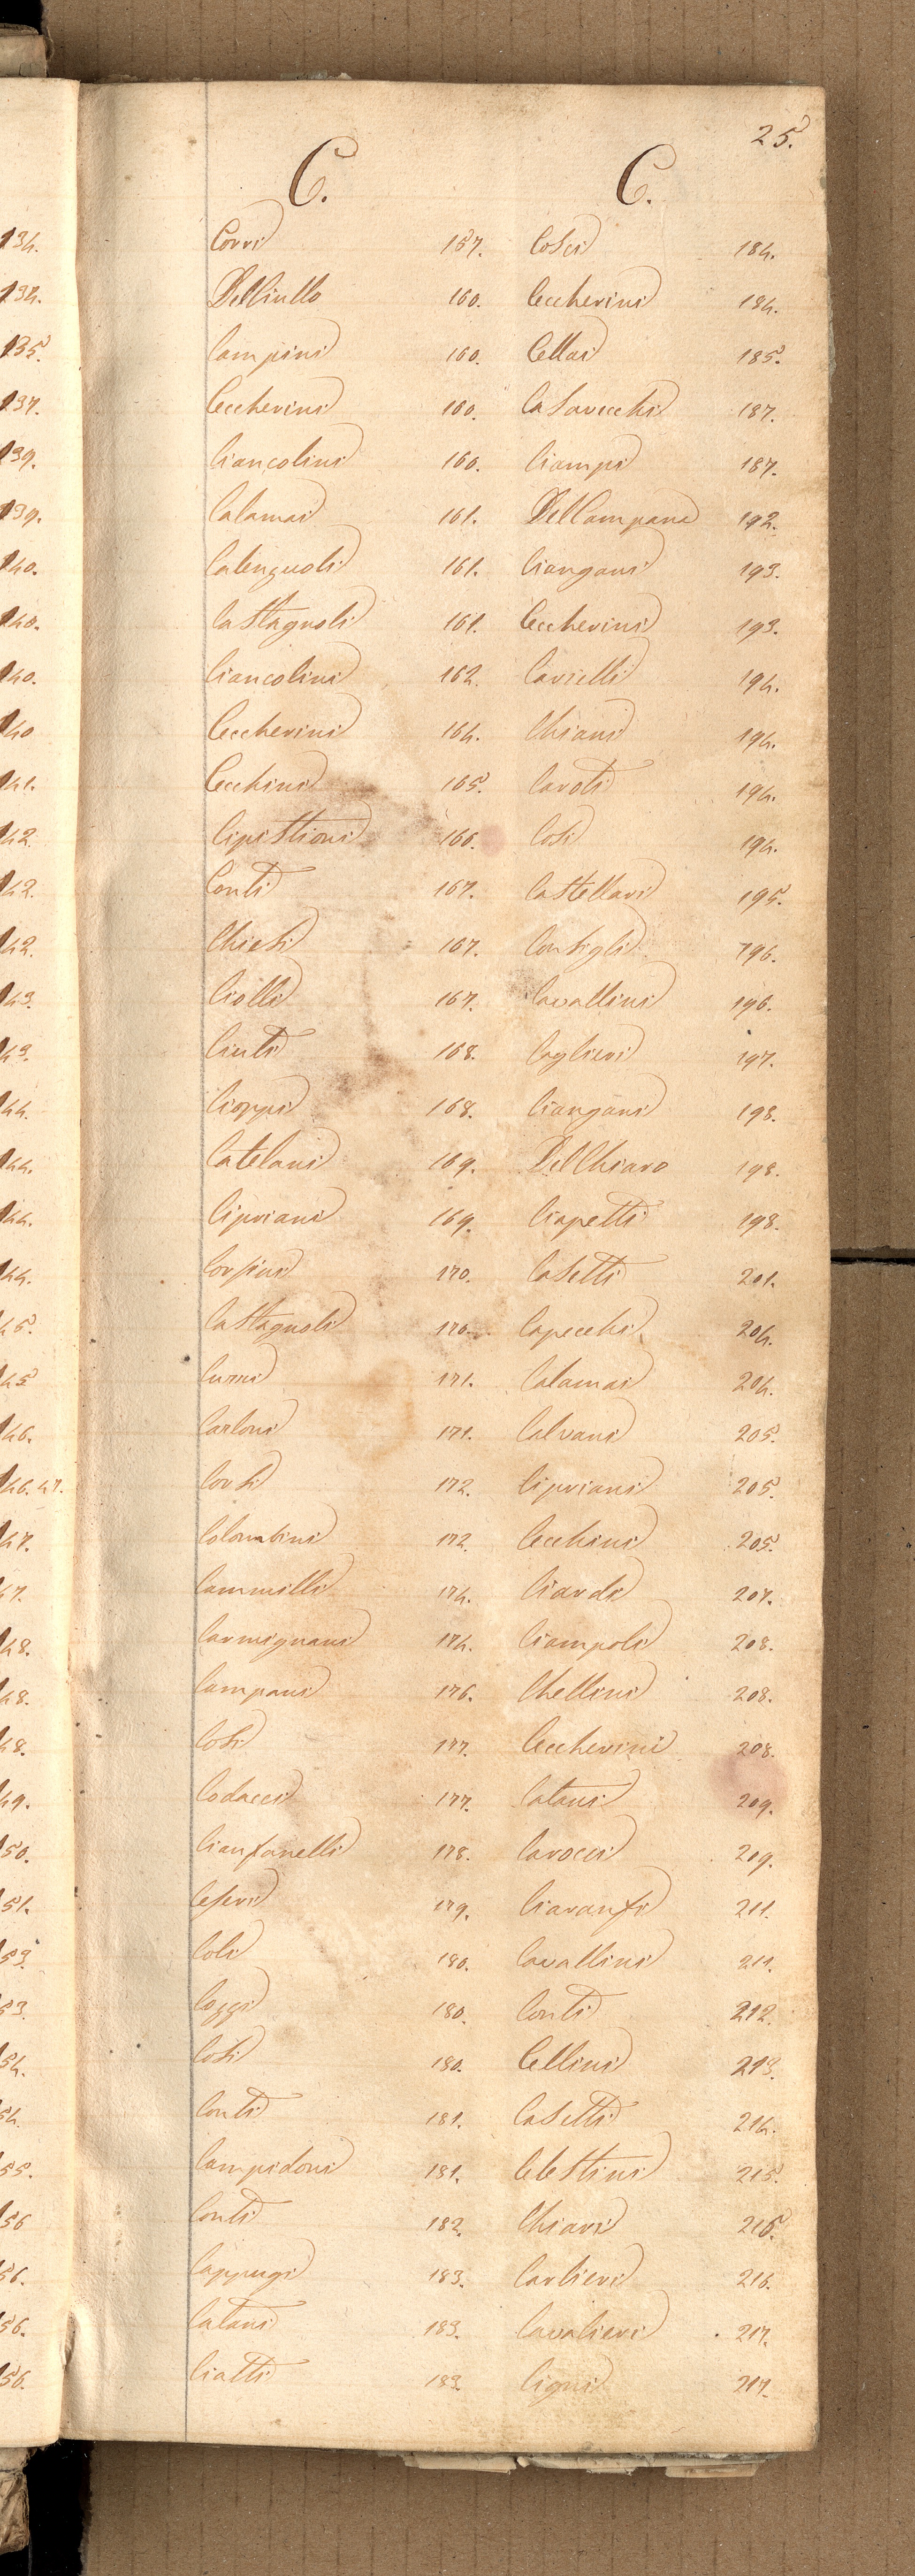 25.
C. C.
Corri 157. Cosci 184.
Del Ciullo 160. Ceccherini 184.
Campini 160. Cellai 185.
Ceccherini 160. Casavecchi 187.
Ciancolini 160. Ciampi 187.
Calamai 161. Del Campana 192.
Calenzuoli 161. Ciangani 193.
Castagnoli 161. Ceccherini 193.
Ciancolini 162. Cavielli 194.
Ceccherini 164. Chiani 194.
Cecchini 165. Caroti 194.
Cipistioni 166. Cosi 194.
Conti 167. Castellani 195.
Chiesi 167. Consigli 196.
Ciolli 167. Cavallini 196.
Ciuti 168. Caglieri 197.
Cioppi 168. Ciangani 198.
Catelani 169. Del Chiaro 198.
Cipriani 169. Ciapetti 198.
Corsini 170. Casetti 201.
Castagnoli 170. Capecchi 204.
171. Calamai 204.
Carloni 171. Calvani 205.
Corsi 172. Cipriani 205.
Colombini 172. Cecchini 205.
Cammilli 174. Ciardi 207.
Carmignani 174. Ciampoli 208.
Campani 176. Chellini 208.
Cosi 177. Ceccherini 208.
Codacci 177. Catani 209.
Cianfanelli 178. Carocci 209.
Ceseri 179. Ciaranfi 211.
Coli 180. Cavallini 211.
Coggi 180. Conti 212.
Cosi 180. Cellini 213.
Conti 181. Casetti 214.
Campidoni 181. Celestini 215.
Conti 182. Chiari 216.
Cappugi 183. Carlieri 216.
Catani 183. Cavalieri 217.
Ciatti 183. Cigni 217.